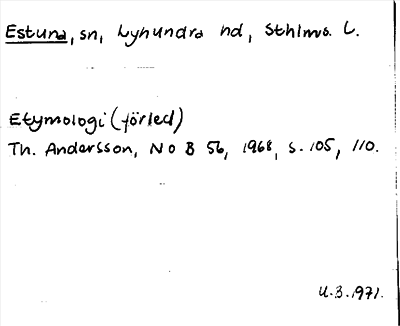 Estuna, sn, Lyhundra hd, Sthlms. L.
Etymologi (förled)
Th. Andersson, NoB 56, 1968, s. 105, 110.
U.B. 1971.